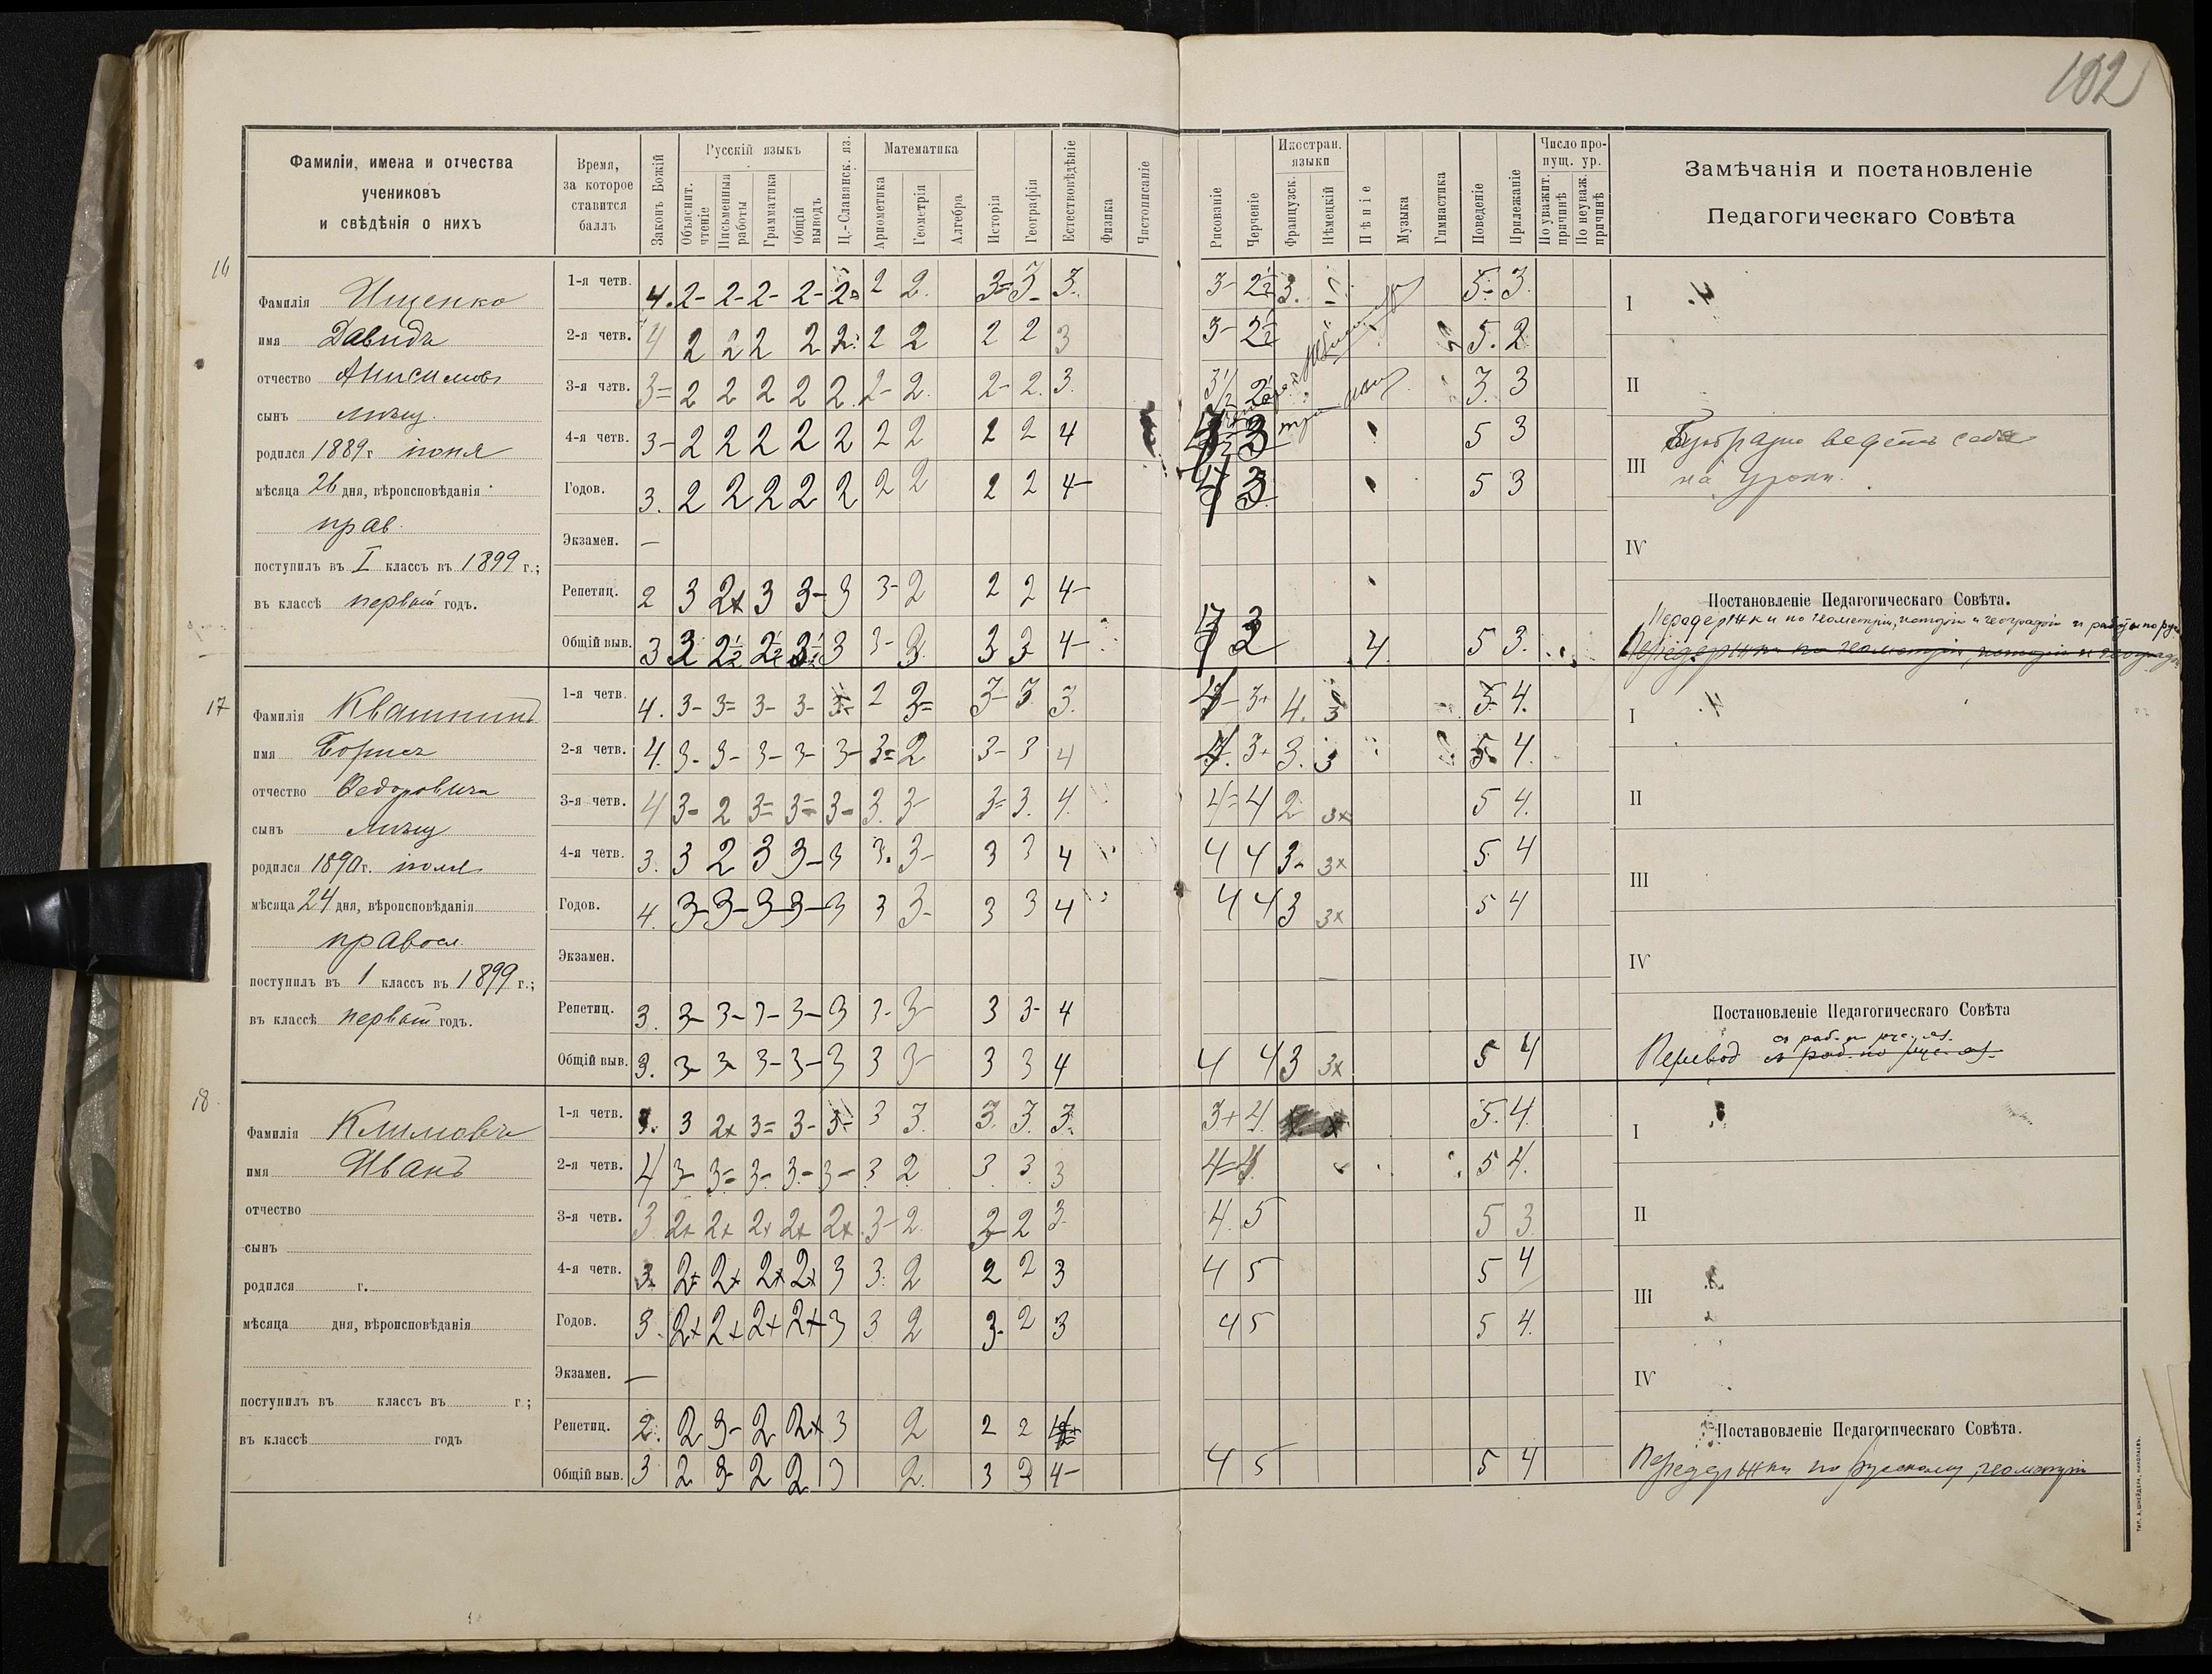 102
Фамиліи, имена и отчества
учениковъ
и свѣдѣнія о нихъ
Время,
за которое
ставится
баллъ
Законъ Божій
Русскій языкъ
Объяснит. чтеніе
Письменныя работы
Грамматика
Общій выводъ
Ц.-Славянск. яз.
Математика
Ариѳметика
Геометрія
Алгебра
Исторія
Географія
Естествовѣдѣніе
Физика
Чистописаніе
Рисованіе
Черченіе
Иностран. языки
Французск.
Нѣмецкій
Пѣніе
Музыка
Гимнастика
Поведеніе
Прилежаніе
Число пропущ. ур.
По уважит. причинѣ
По неуваж. причинѣ
Замѣчанія и постановленіе
Педагогическаго Совѣта
16
Фамилія Ищенко
имя Давидъ
отчество Анисимовъ
сынъ
родился 1889 г. іюня
мѣсяца 26 дня, вѣроисповѣданія
прав.
поступилъ въ I классъ въ 1899 г.;
въ классѣ первый годъ.
1-я четв. 4. 2- 2- 2- 2- 2= 2 2. 3= 3- 3. 3- 2½ 3. 5- 3.
2-я четв. 4 2 2 2 2 2 2 2 2 2 3 3- 2½ 5. 2
3-я четв. 3= 2 2 2 2 2. 2- 2. 2- 2. 3. 3½ 2½ 3. 3
4-я четв. 3- 2 2 2 2 2 2 2 2 2 4 3 5 3
Годов. 3. 2 2 2 2 2 2 2 2 2 4- 3 5 3
Экзамен. —
Репетиц. 2 3 2+ 3 3- 3 3- 2 2 2 4-
Общій выв. 3 3 2½ 2½ 3 3- 3 3 4- 4. 5 3.
I
II
III ведетъ себя
на уроки.
IV
Постановленіе Педагогическаго Совѣта.
Передержки по геометріи, исторіи и географіи и работы по рус
Передержки по геометріи, исторіи и географ
17
Фамилія Квашнинъ
имя Борисъ
отчество Федоровичъ
сынъ
родился 1890 г. іюля
мѣсяца 24 дня, вѣроисповѣданія
правосл.
поступилъ въ 1 классъ въ 1899 г.;
въ классѣ первый годъ.
1-я четв. 4. 3- 3= 3- 3- 2 3= 3- 3 3. 3+ 4. 3 5 4.
2-я четв. 4. 3- 3- 3- 3- 3- 3= 2 3- 3 4 4. 3+ 3. 3 5 4.
3-я четв. 4 3- 2 3= 3= 3- 3. 3- 3= 3. 4. 4= 4 2 3+ 5 4.
4-я четв. 3. 3 2 3 3- 3 3. 3- 3 3 4 4 4 3- 3+ 5 4
Годов. 4. 3- 3- 3- 3- 3 3 3- 3 3 4 4 4 3 3+ 5 4
Экзамен.
Репетиц. 3. 3- 3- 3- 3- 3 3- 3- 3 3- 4
Общій выв. 3. 3- 3- 3- 3- 3 3 3- 3 3 4 4 4 3 3+ 5 4
I
II
III
IV
Постановленіе Педагогическаго Совѣта
Переводъ съ раб. по рус. яз.
съ раб. по рус. яз.
18
Фамилія Климовъ
имя Иванъ
отчество
сынъ
родился г.
мѣсяца дня, вѣроисповѣданія
поступилъ въ классъ въ г;
въ классѣ годъ
1-я четв. 3 2+ 3= 3- 3- 3 3. 3. 3. 3. 3+ 4. 5. 4.
2-я четв. 4 3- 3= 3- 3- 3- 3 2 3 3. 3 4= 4. 5 4.
3-я четв. 3 2+ 2+ 2+ 2+ 2+ 3- 2 2- 2 3 4. 5 5 3
4-я четв. 3. 2+ 2+ 2+ 2+ 3 3. 2 2 2 3 4 5 5 4
Годов. 3. 2+ 2+ 2+ 2+ 3 3 2 3- 2 3 4 5 5 4.
Экзамен. —
Репетиц. 2. 2 3- 2 2+ 3 2 2 2
Общій выв. 3 2 3- 2 2 3 2. 3 3 4- 4 5 5 4
I
II
III
IV
Постановленіе Педагогическаго Совѣта.
Передержки по русскому, геометріи
ТИП. А. ШНЕЙДЕРА, НИКОЛАЕВЪ.